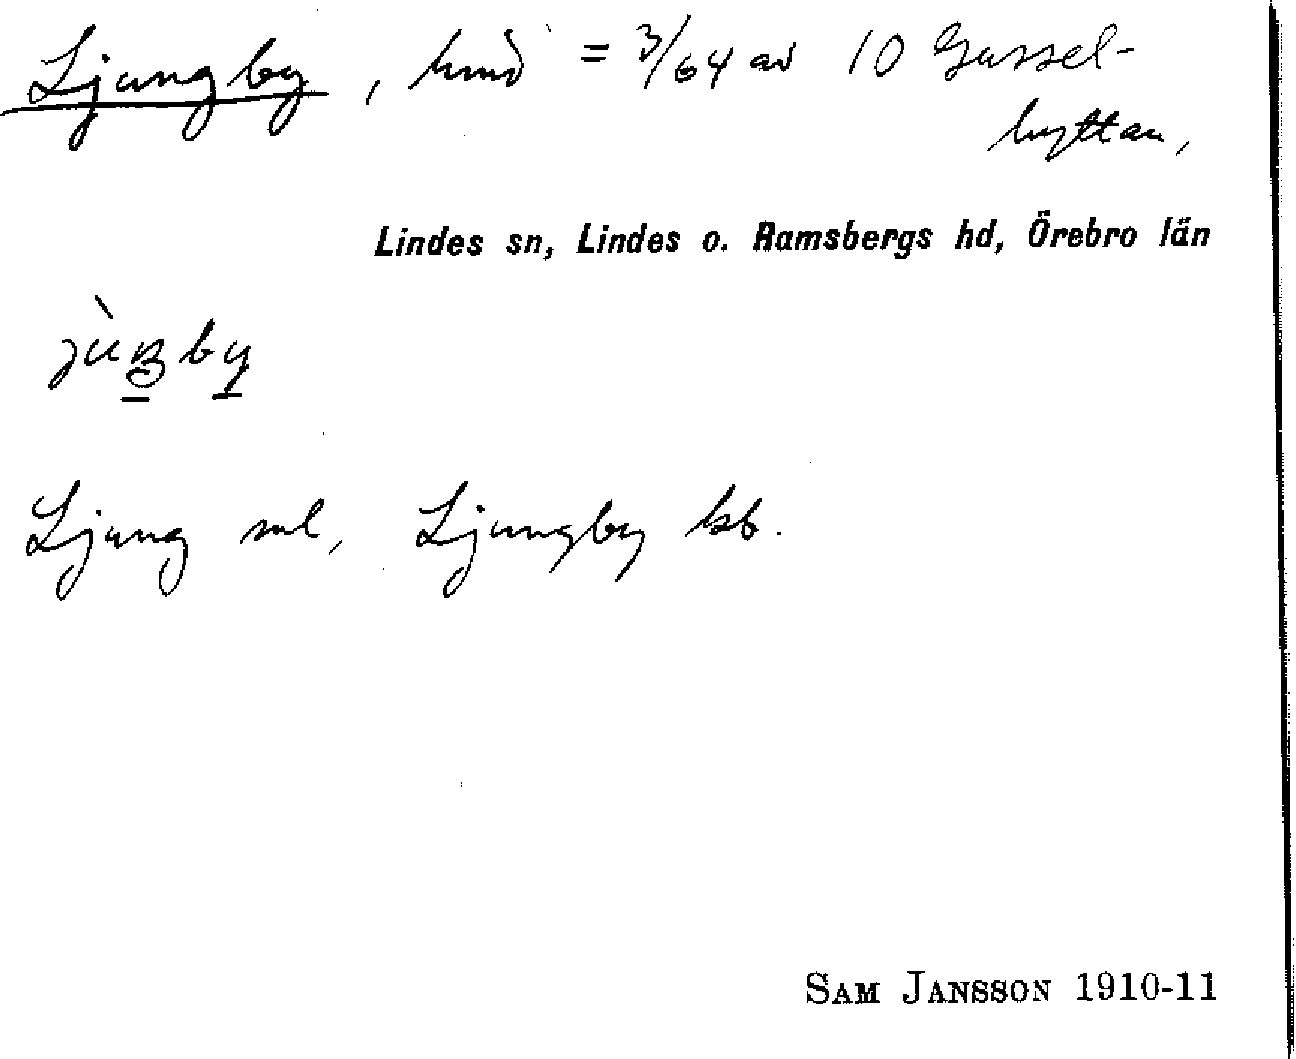 Ljungby, hmd = 3/64 av 10 Gussel-
hyttan,
Lindes sn, Lindes o. Ramsbergs hd, Örebro län
Ljung ml, Ljungby kb.
SAM JANSSON 1910-11